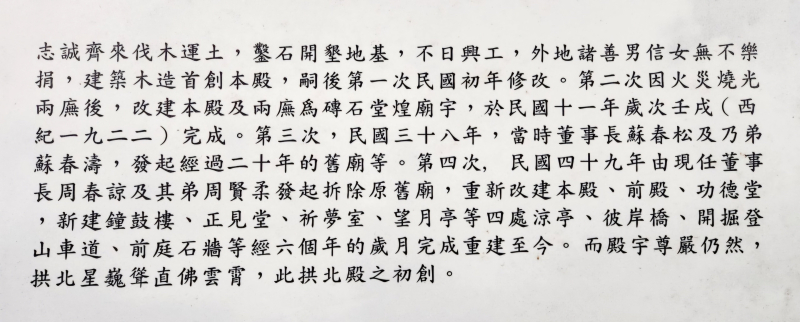 志誠齊來伐木運土，鑿石開墾地基，不日興工，外地諸善男信女無不樂
捐，建築木造首創本殿，嗣後第一次民國初年修改。第二次因火災燒光
兩廡後，改建本殿及兩廡為磚石堂煌廟宇，於民國十一年歲次壬戌（西
紀一九二二）完成。第三次，民國三十八年，當時董事長蘇春松及乃弟
蘇春濤，發起經過二十年的舊廟等。第四次，民國四十九年由現任董事
長周春諒及其弟周賢柔發起拆除原舊廟，重新改建本殿、前殿、功德堂
，新建鐘鼓樓、正見堂、祈夢室、望月亭等四處涼亭、彼岸橋、開掘登
山車道、前庭石牆等經六個年的歲月完成重建至今。而殿宇尊嚴仍然，
拱北星巍聳直佛雲霄，此拱北殿之初創。